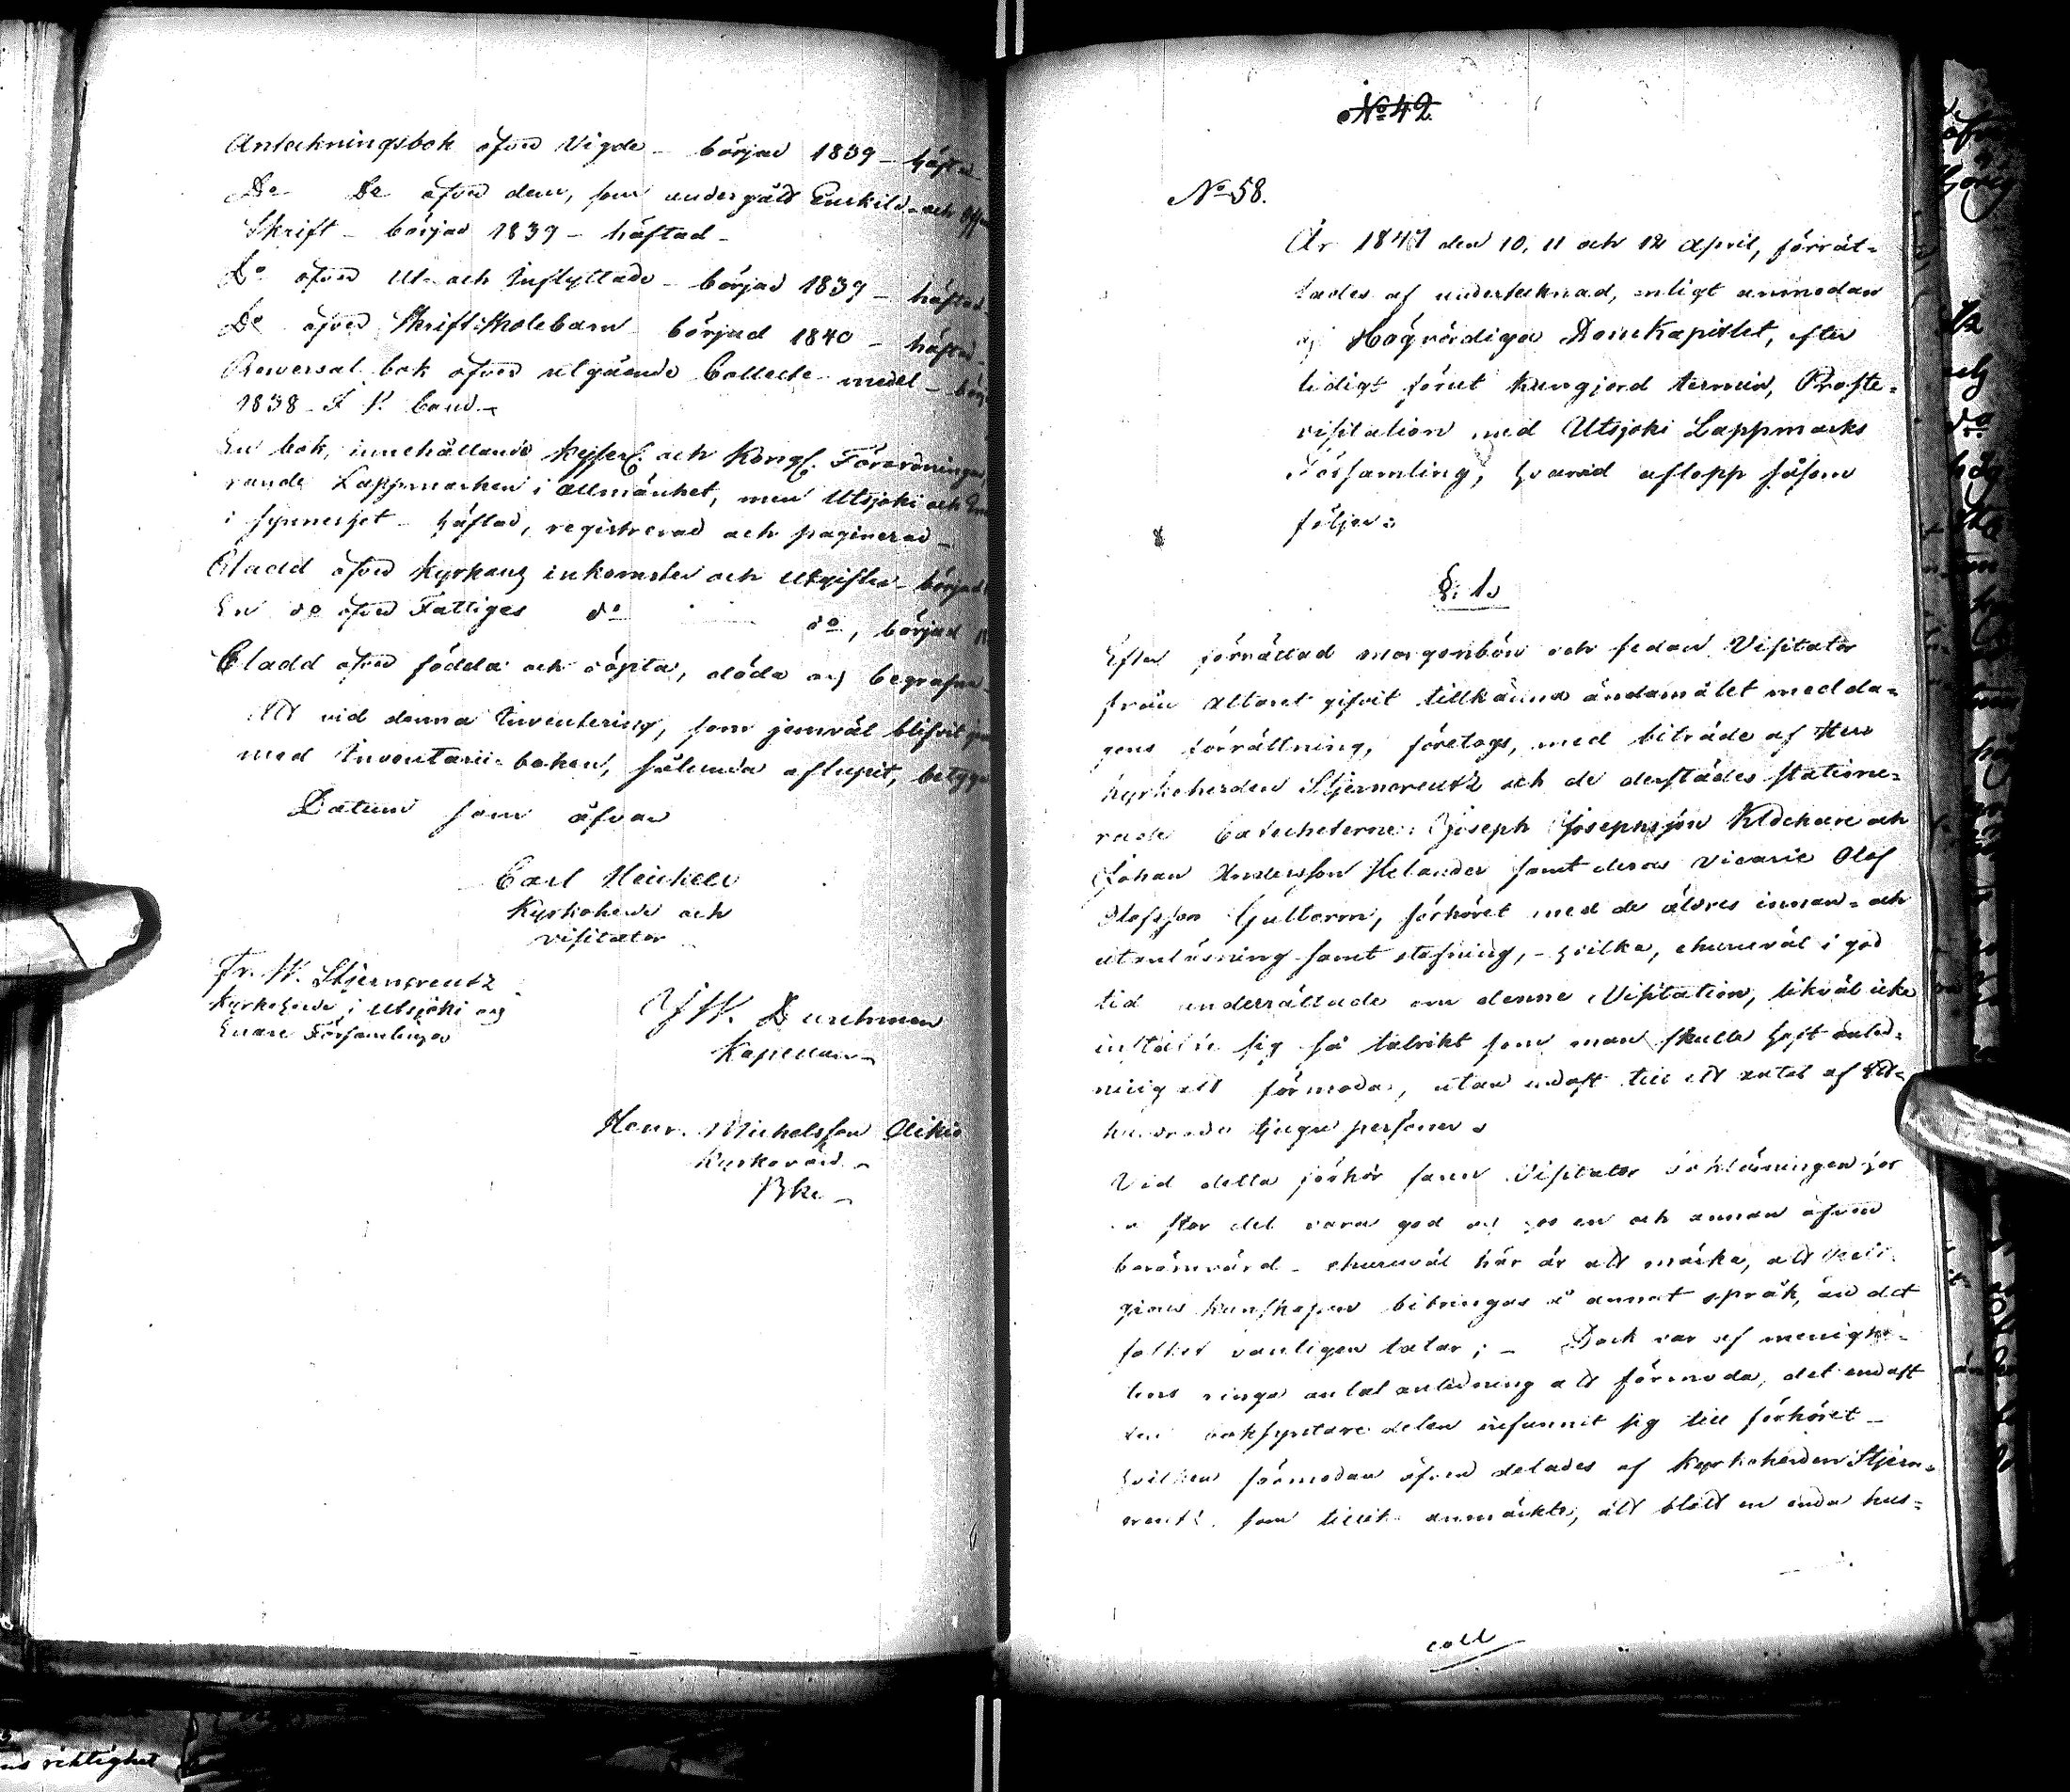 Anteckningsbok öfver Vigde - börjad 1839 - häftad
Do Do öfver dem, som undergått Enskild och
Skrift - börjad 1839 - häftad -
Do öfver Ut- och Inflyttade - börjad 1839 - häftad -
Do öfver Skriftskolebarn börjad 1840 - häftad -
Reversal bok öfver utgående Collecte medel -
1838 - band -
En bok, innehållande Kejserl. och Kongl. Förordningar,
rande Lappmarken i allmänhet, men Utsjoki och
i synnerhet - häftad, registrerad och paginerad -
Cladd öfver kyrkans inkomster och Utgifter - börjad
En do öfver Fattiges do do, börjad
Cladd öfver födda och döpta, döda och begrafne -
Att vid denna Inventering, som jemväl blifvit
med Inventarii-boken, sålunda aflupit, betygar
Datum som ofvan
Carl Heickell
Kyrkoherde och
visitator
Fr. W. Stjerncreutz
Kyrkoherde i Utsjoki och
Enare Församlingar
J W. Durchman
Kapellan
Henr. Michelsson Aikio
kyrkovärd
No 42
No 58.
År 1847 den 10, 11 och 12 April, förrät-
tades af undertecknad, enligt anmodan
af Högvördiga DomKapitlet, efter
tidigt förut kungjord termin, Proste-
visitation med Utsjoki Lappmarks
Församling, hvarvid aflopp såsom
följer:
§. 1.
Efter förrättad morgonbön och sedan Visitator
från altaret gifvit tillkänna ändamålet med da-
gens förrättning, företogs, med biträde af Herr
kyrkoherden Stjerncreutz och de derstädes statione-
rade Catecheterne: Joseph Josephsson Klockare och
Johan Andersson Helander samt deras vicarie Olof
Olofsson Guttorm, förhöret med de äldres innan- och
utanläsning samt stafning, - hvilka, churuväl i god
tid underrättade om denne Visitation, likväl icke
infunnit sig så talrikt som man skulle haft anled-
ning att förmoda, utan endast till ett antal af Ett-
hundrade tjugu personer.
Vid detta förhör fann Visitator bokläsningen hos
de flera vara god och hos en och annan äfven
berömvärd - churuväl här är att märka, att Reli-
gions kunskapen bibringas å annat språk, än det
folket vanligen talar; - Dock var af menighe-
tens ringa antal anledning att förmoda, det endast
den boksyntare delen infunnit sig till förhöret -
hvilken förmodan äfven delades af Kyrkoherden Stjern-
creutz som tillika anmärkte, att blott en enda hus-
coll
riktighet